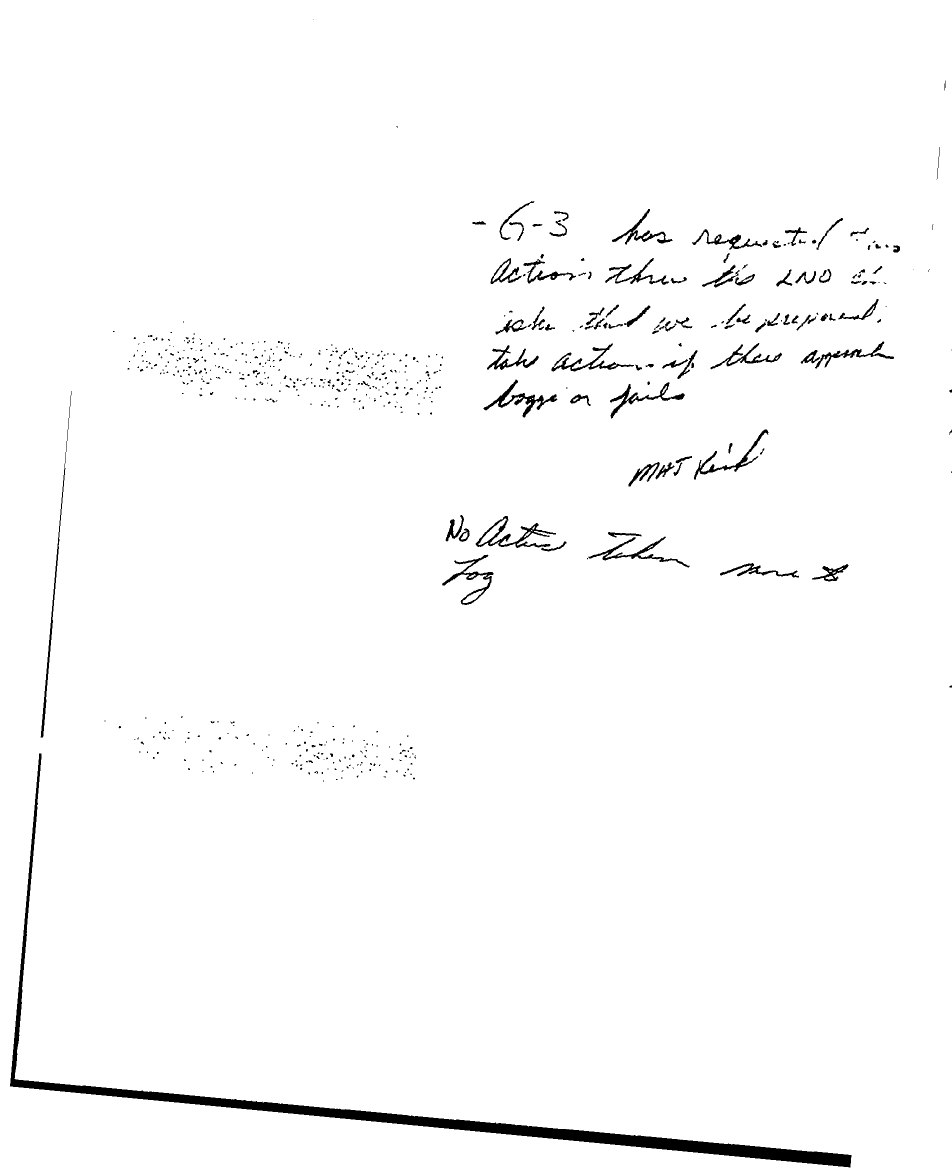 - G-3 has requested this
Action thru the LNO
asks that we be prepared
take action if there approach
or fails
MAJ
No Action Taken
Log